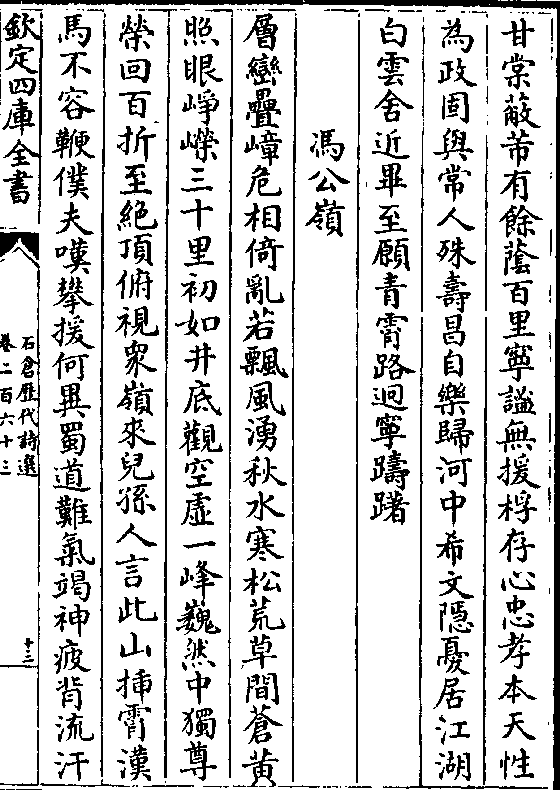 甘棠蔽芾有餘蔭百里寧謐無援桴存心忠孝本天性
為政固與常人殊壽昌自樂歸河中希文隱憂居江湖
白雲舍近畢至願青霄路迥寧躊躇
馮公嶺
層巒疊嶂危相倚亂若飄風湧秋水寒松荒草間蒼黃
照眼崢嶸三十里初如井底觀空虛一峰巍然中獨尊
縈回百折至絶頂俯視衆嶺來兒孫人言此山挿霄漢
馬不容鞭僕夫嘆攀援何異蜀道難氣竭神疲背流汗
欽定四庫全書
石倉歷代詩選
卷二百六十三
十三